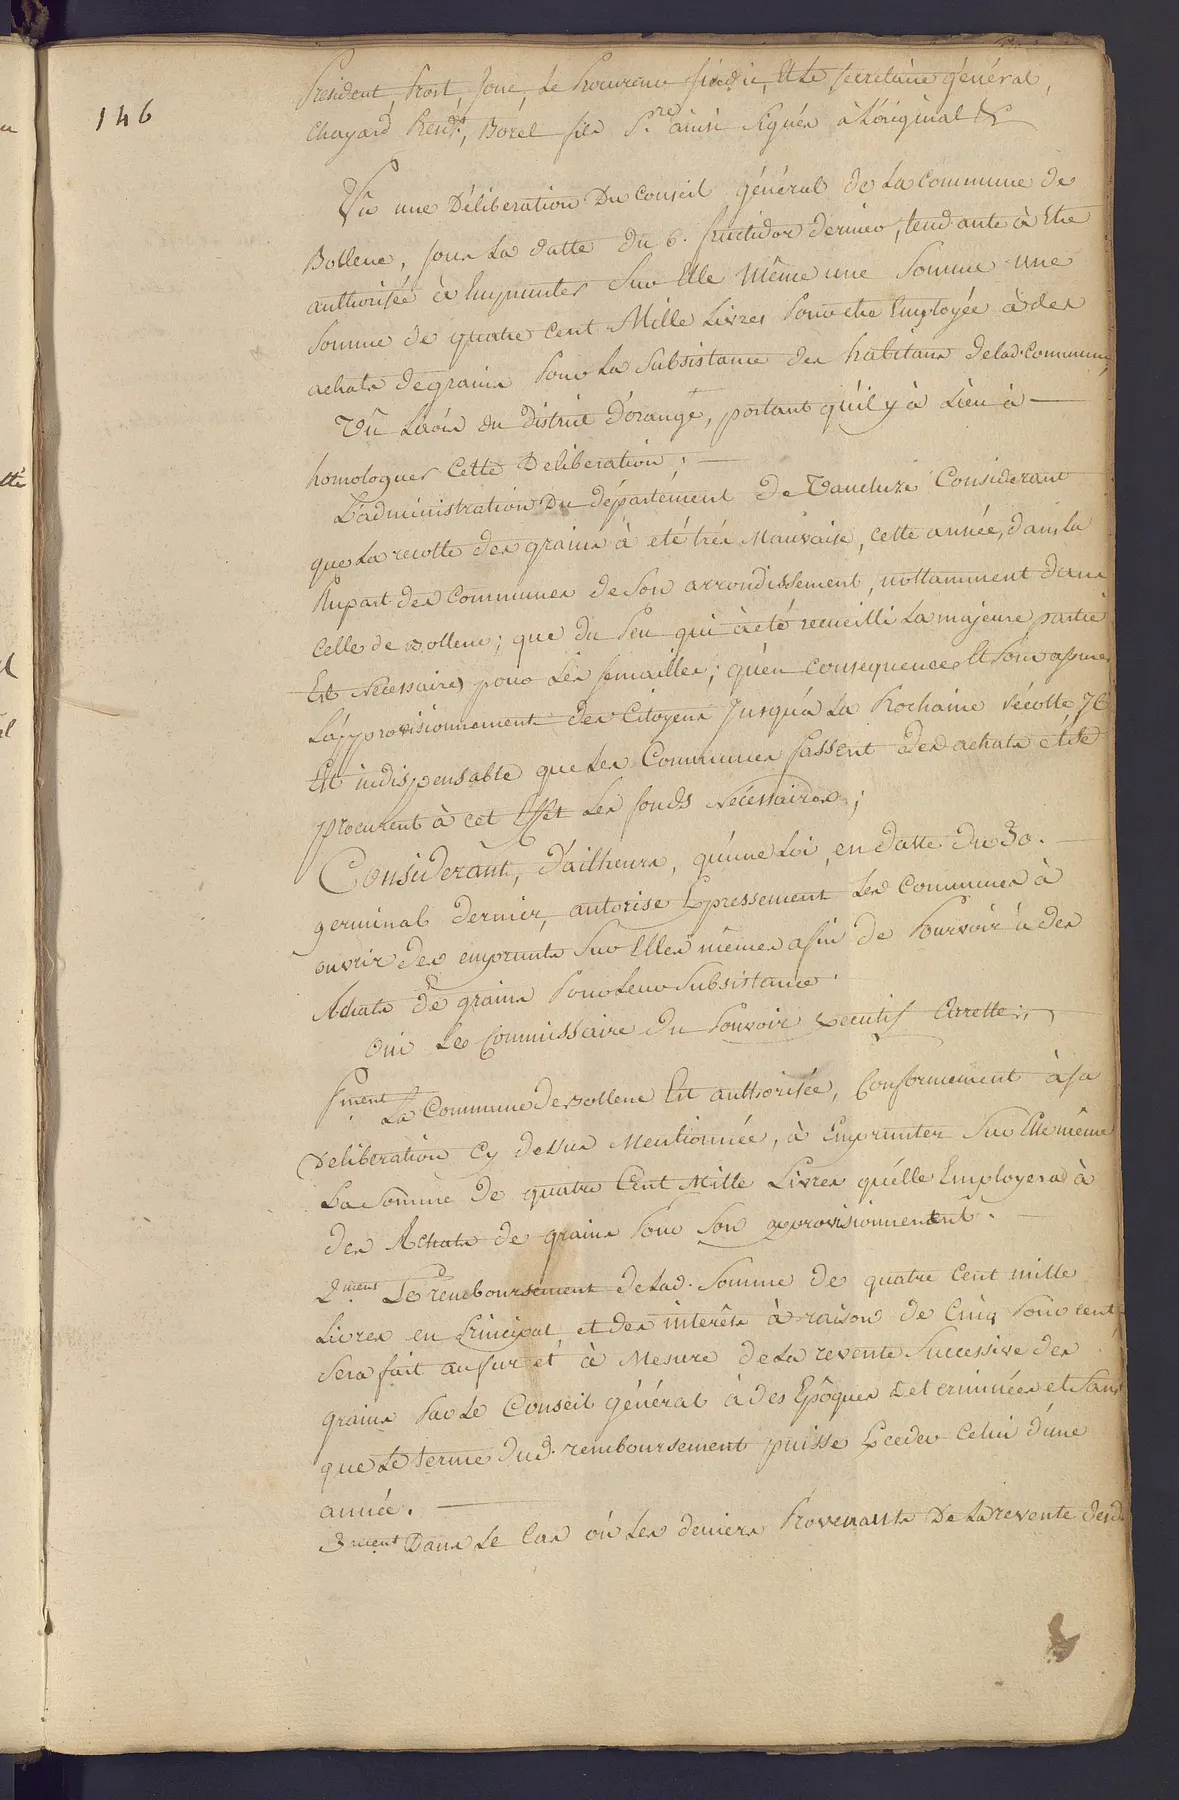 146
President, Prost, Joue, Le Procureur sindic, Et Le secretaire général,
Chayard Presidt, Borel fils S.re ainsi Signés à L'original &
Vû une Déliberation Du Conseil général de La Commune de
Bollene, sous La datte du 6. fructidor dernier, tendante à Etre
authorisée à Emprunter Sur Elle Même une Somme une
Somme de quatre cent Mille Livres Pour etre Employée à des
achats de grains Pour La Subsistance des habitans de lad. Commune,
Vû L'avis du District d'orange, portant qu'il y à Lieu à
homologuer Cette Deliberation;
L'administration Du département de Vaucluze Considerant
que La recolte des grains à eté très Mauvaise, cette année, dans la
Plupart des Communes de Son arrondissement, nottamment dans
Celle de Bollene; que du Peu qui à eté recueilli La majeure partie
Est Necessaire pour Les semailles; qu'en Consequence, Et Pour assurer
L'approvisionnement des Citoyens Jusqu'a La Prochaine récolte, Il
Est indispensable que Les Communes fassent des achats et se
procurent à cet Effet Les fonds Necessaires;
Considerant, d'ailheurs, qu'une Loi, en datte du 30.
germinal dernier, autorise Expressement Les Communes à
ouvrir des emprunts Sur Elles mêmes afin de Pourvoir à des
Achats de grains Pour Leur Subsistance.
Oui Le Commissaire du Pouvoir Executif Arrette:
P.ment La Commune de Bollene Est authorisée, Conformement à sa
Deliberation Cy dessus Mentionnée, à Emprunter Sur Elle même
La Somme de quatre Cent Mille Livres qu'elle Employera à
des Achats de grains Pour Son approvisionnement.
2.ment Le remboursement de Lad. Somme de quatre Cent mille
Livres en Principal, et des interêts à raison de Cinq Pour cent
Sera fait au fur et à Mesure de La revente Successive des
grains Par Le Conseil général à des Epôques determinées et Sans
que Le terme dud. remboursement puisse Exceder Celui d'une
année.
3.ment Dans Le Cas où Les deniers Provenants De La revente desd.